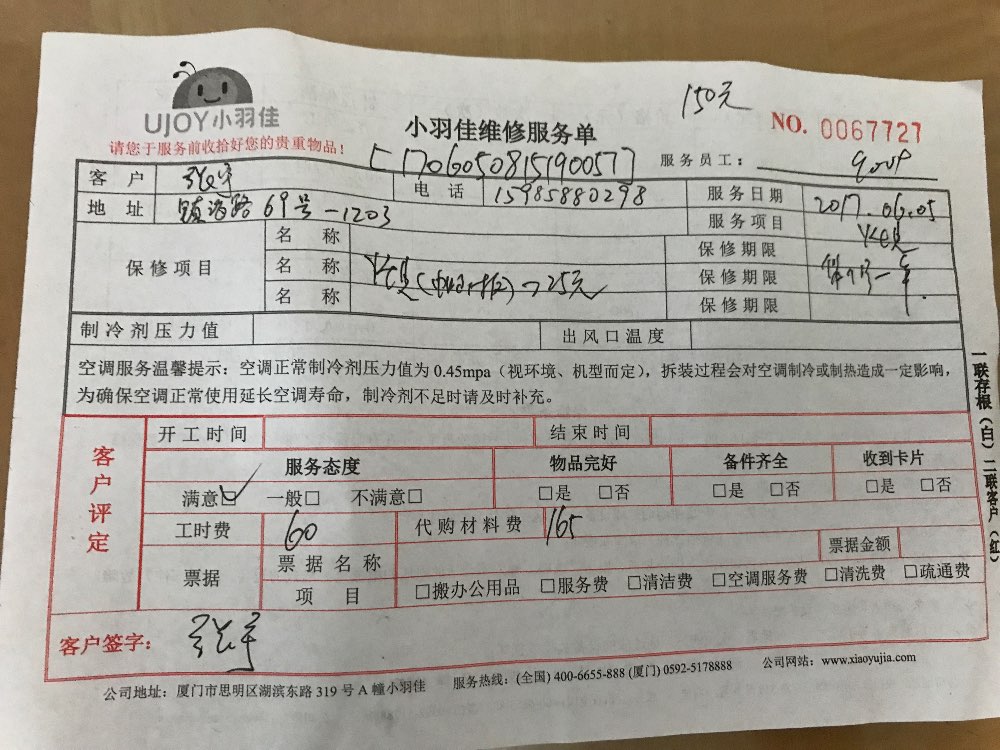 150元
UJOY小羽佳
小羽佳维修服务单
NO. 0067727
请您于服务前收拾好您的贵重物品!
[17060508151900577]
服务员工:
客户
电话 15985880298
服务日期 2017.06.05
地址 镇海路69号-1203
服务项目
保修项目
名称
保修期限
名称
25元
保修期限 一年
名称
保修期限
制冷剂压力值
出风口温度
空调服务温馨提示:空调正常制冷剂压力值为 0.45mpa(视环境、机型而定),拆装过程会对空调制冷或制热造成一定影响,
为确保空调正常使用延长空调寿命,制冷剂不足时请及时补充。
客户评定
开工时间
结束时间
服务态度
物品完好
备件齐全
收到卡片
满意☑ 一般□ 不满意□
□是 □否
□是 □否
□是 □否
工时费 60
代购材料费 165
票据
票据名称
票据金额
项目
□搬办公用品 □服务费 □清洁费 □空调服务费 □清洗费 □疏通费
客户签字:
公司地址:厦门市思明区湖滨东路 319 号 A 幢小羽佳
服务热线:(全国) 400-6655-888 (厦门) 0592-5178888
公司网站:www.xiaoyujia.com
一联存根(白)二联客户(红)